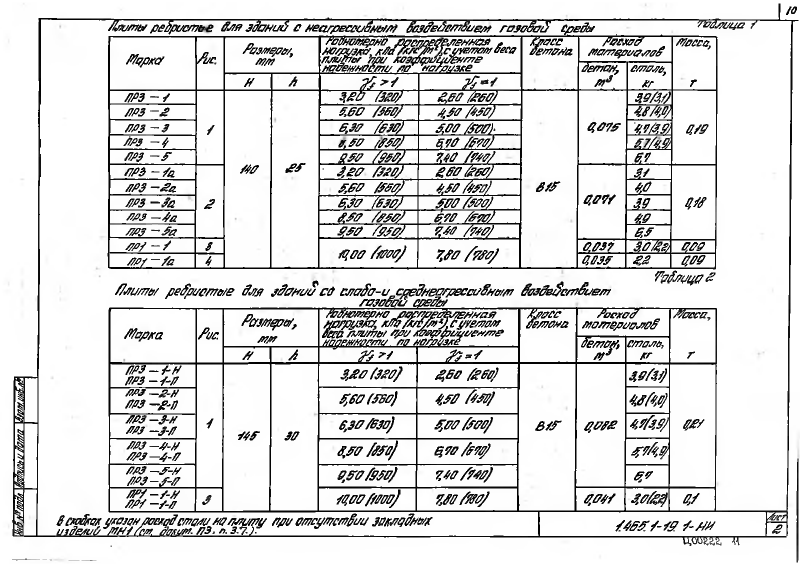 10
Плиты ребристые для зданий с неагрессивным воздействием газовой среды
Таблица 1
Марка Рис. Размеры, мм Равномерно распределенная нагрузка, кПа (кгс/м²), с учетом веса плиты при коэффициенте надежности по нагрузке Класс бетона Расход материалов Масса, т
H h γf > 1 γf = 1 бетон, м³ сталь, кг
ПР3-1 1 140 25 3,20 (320) 2,60 (260) В15 0,075 3,9(3,1) 0,19
ПР3-2 5,60 (560) 4,50 (450) 4,8(4,0)
ПР3-3 6,30 (630) 5,00 (500) 4,7(3,9)
ПР3-4 8,50 (850) 6,70 (670) 5,7(4,9)
ПР3-5 9,50 (950) 7,40 (740) 6,7
ПР3-1а 2 3,20 (320) 2,60 (260) 0,071 3,1 0,18
ПР3-2а 5,60 (560) 4,50 (450) 4,0
ПР3-3а 6,30 (630) 5,00 (500) 3,9
ПР3-4а 8,50 (850) 6,70 (670) 4,9
ПР3-5а 9,50 (950) 7,40 (740) 6,5
ПР1-1 3 10,00 (1000) 7,80 (780) 0,037 3,0(2,2) 0,09
ПР1-1а 4 0,035 2,2 0,09
Таблица 2
Плиты ребристые для зданий со слабо- и среднеагрессивным воздействием
газовой среды
Марка Рис. Размеры, мм Равномерно распределенная нагрузка, кПа (кгс/м²), с учетом веса плиты при коэффициенте надежности по нагрузке Класс бетона Расход материалов Масса, т
H h γf > 1 γf = 1 бетон, м³ сталь, кг
ПР3-1-Н 1 145 30 3,20 (320) 2,60 (260) В15 0,082 3,9(3,1) 0,21
ПР3-1-П
ПР3-2-Н 5,60 (560) 4,50 (450) 4,8(4,0)
ПР3-2-П
ПР3-3-Н 6,30 (630) 5,00 (500) 4,7(3,9)
ПР3-3-П
ПР3-4-Н 8,50 (850) 6,70 (670) 5,7(4,9)
ПР3-4-П
ПР3-5-Н 9,50 (950) 7,40 (740) 6,7
ПР3-5-П
ПР1-1-Н 3 10,00 (1000) 7,80 (780) 0,041 3,0(2,2) 0,1
ПР1-1-П
В скобках указан расход стали на плиту при отсутствии закладных
изделий МН1 (см. докум. ПЗ. п. 3.7.).
1.465.1-19 1-НИ
Лист
2
Ц00222 11
Инв.№ подл. Подпись и дата Взам.инв.№